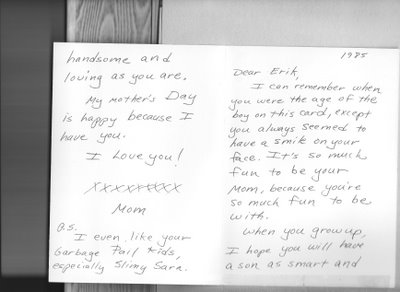 1985
Dear Erik,
I can remember when
you were the age of the
boy on this card, except
you always seemed to
have a smile on your
face. It's so much
fun to be your
Mom, because you're
so much fun to be
with.
When you grow up,
I hope you will have
a son as smart and
handsome and
loving as you are.
My mother's Day
is happy because I
have you.
I love you!
XXXXXXXXX
Mom
P.S.
I even like your
Garbage Pail Kids,
especially Slimy Sam.